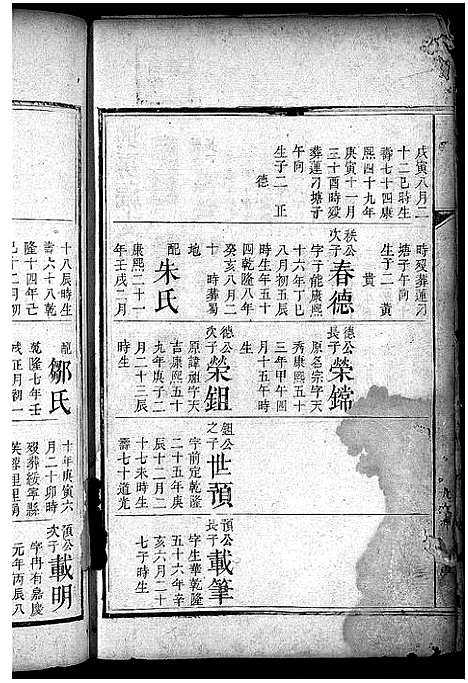 戊寅八月二
十二巳時生
壽七十四康
熙四十九年
庚寅十一月
三十酉時歿
葬蓮刃塘子
午向
生子二 正
德
時歿葬蓮刃
塘子午向
生子二 黃
貴
秩公
次子 春德
字子能康熙
十六年丁巳
八月初五辰
時生年五十
四乾隆八年
癸亥八月二
十 時葬蜀
地
配 朱氏
康熙二十一
年壬戌二月
十八辰時生
壽六十八乾
隆十四年己
巳十二月初
德公
長子 榮鐺
原名宗字天
秀康熙五十
三年甲午四
月十五午時
生
德公
次子 榮鉏
原諱祖字天
吉康熙五十
九年庚子二
月二十三辰
時生
配 鄒氏
乾隆七年壬
戌正月初一
鉏公
之子 世預
字前定乾隆
二十五年庚
辰十二月二
十七未時生
壽七十道光
十年庚寅六
月二十卯時
歿葬綏寧縣
芙蓉里里勇
預公
長子 載筆
字生華乾隆
五十六年辛
亥六月二十
七子時生
預公
次子 載明
字冉有嘉慶
元年丙辰八